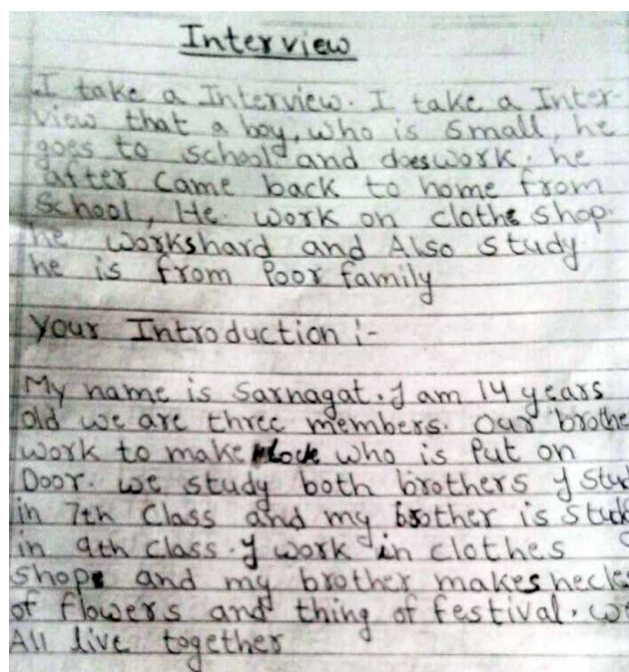 Interview
I take a Interview. I take a Inter-
view that a boy, who is small, he
goes to school and does work. he
after came back to home from
School, He work on clothe shop.
he workshard and Also study
he is from Poor family
Your Introduction :-
My name is Sarnagat. I am 14 years
old we are three members. Our brothe
work to make lock who is Put on
Door. we study both brothers I Stud
in 7th Class and my brother is stud
in 9th class. I work in clothes
shop and my brother makes necles
of flowers and thing of festival. we
All live together